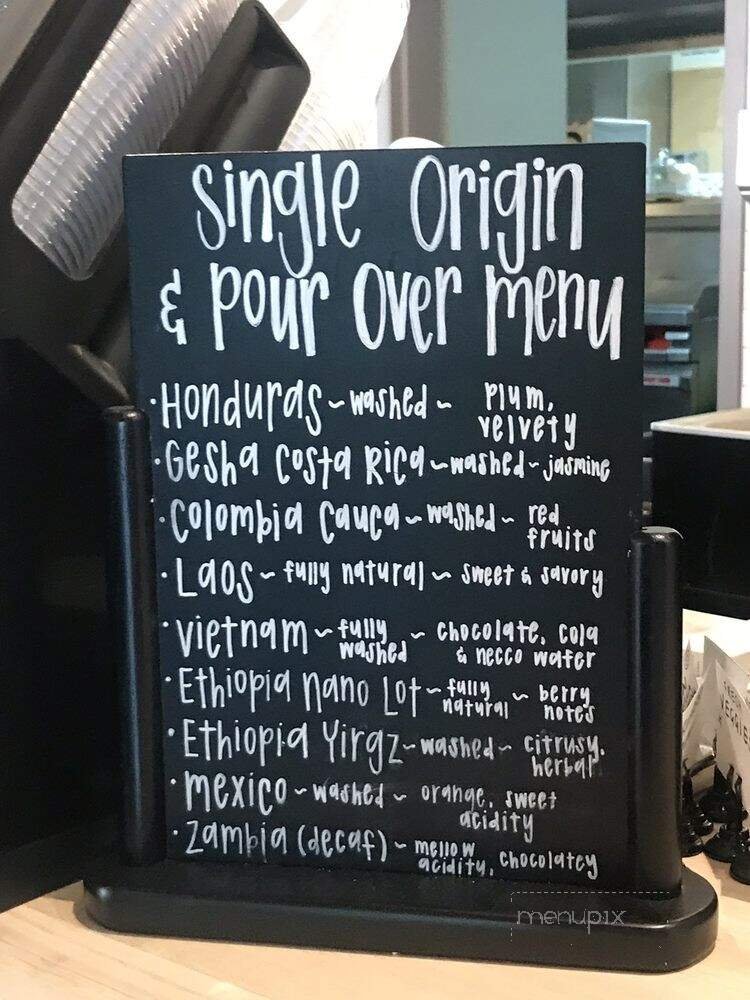 Single Origin
& Pour Over menu
·Honduras ~ washed ~ Plum,
velvety
·Gesha Costa Rica ~ washed ~ jasmine
·Colombia Cauca ~ washed ~ red
fruits
·Laos ~ fully natural ~ sweet & savory
·Vietnam ~ fully
washed ~ chocolate, cola
& necco wafer
·Ethiopia Nano Lot ~ fully
natural ~ berry
notes
·Ethiopia Yirgz ~ washed ~ citrusy,
herbal
·mexico ~ washed ~ orange, sweet
acidity
·Zambia (decaf) ~ mellow
acidity, chocolatey
menupix